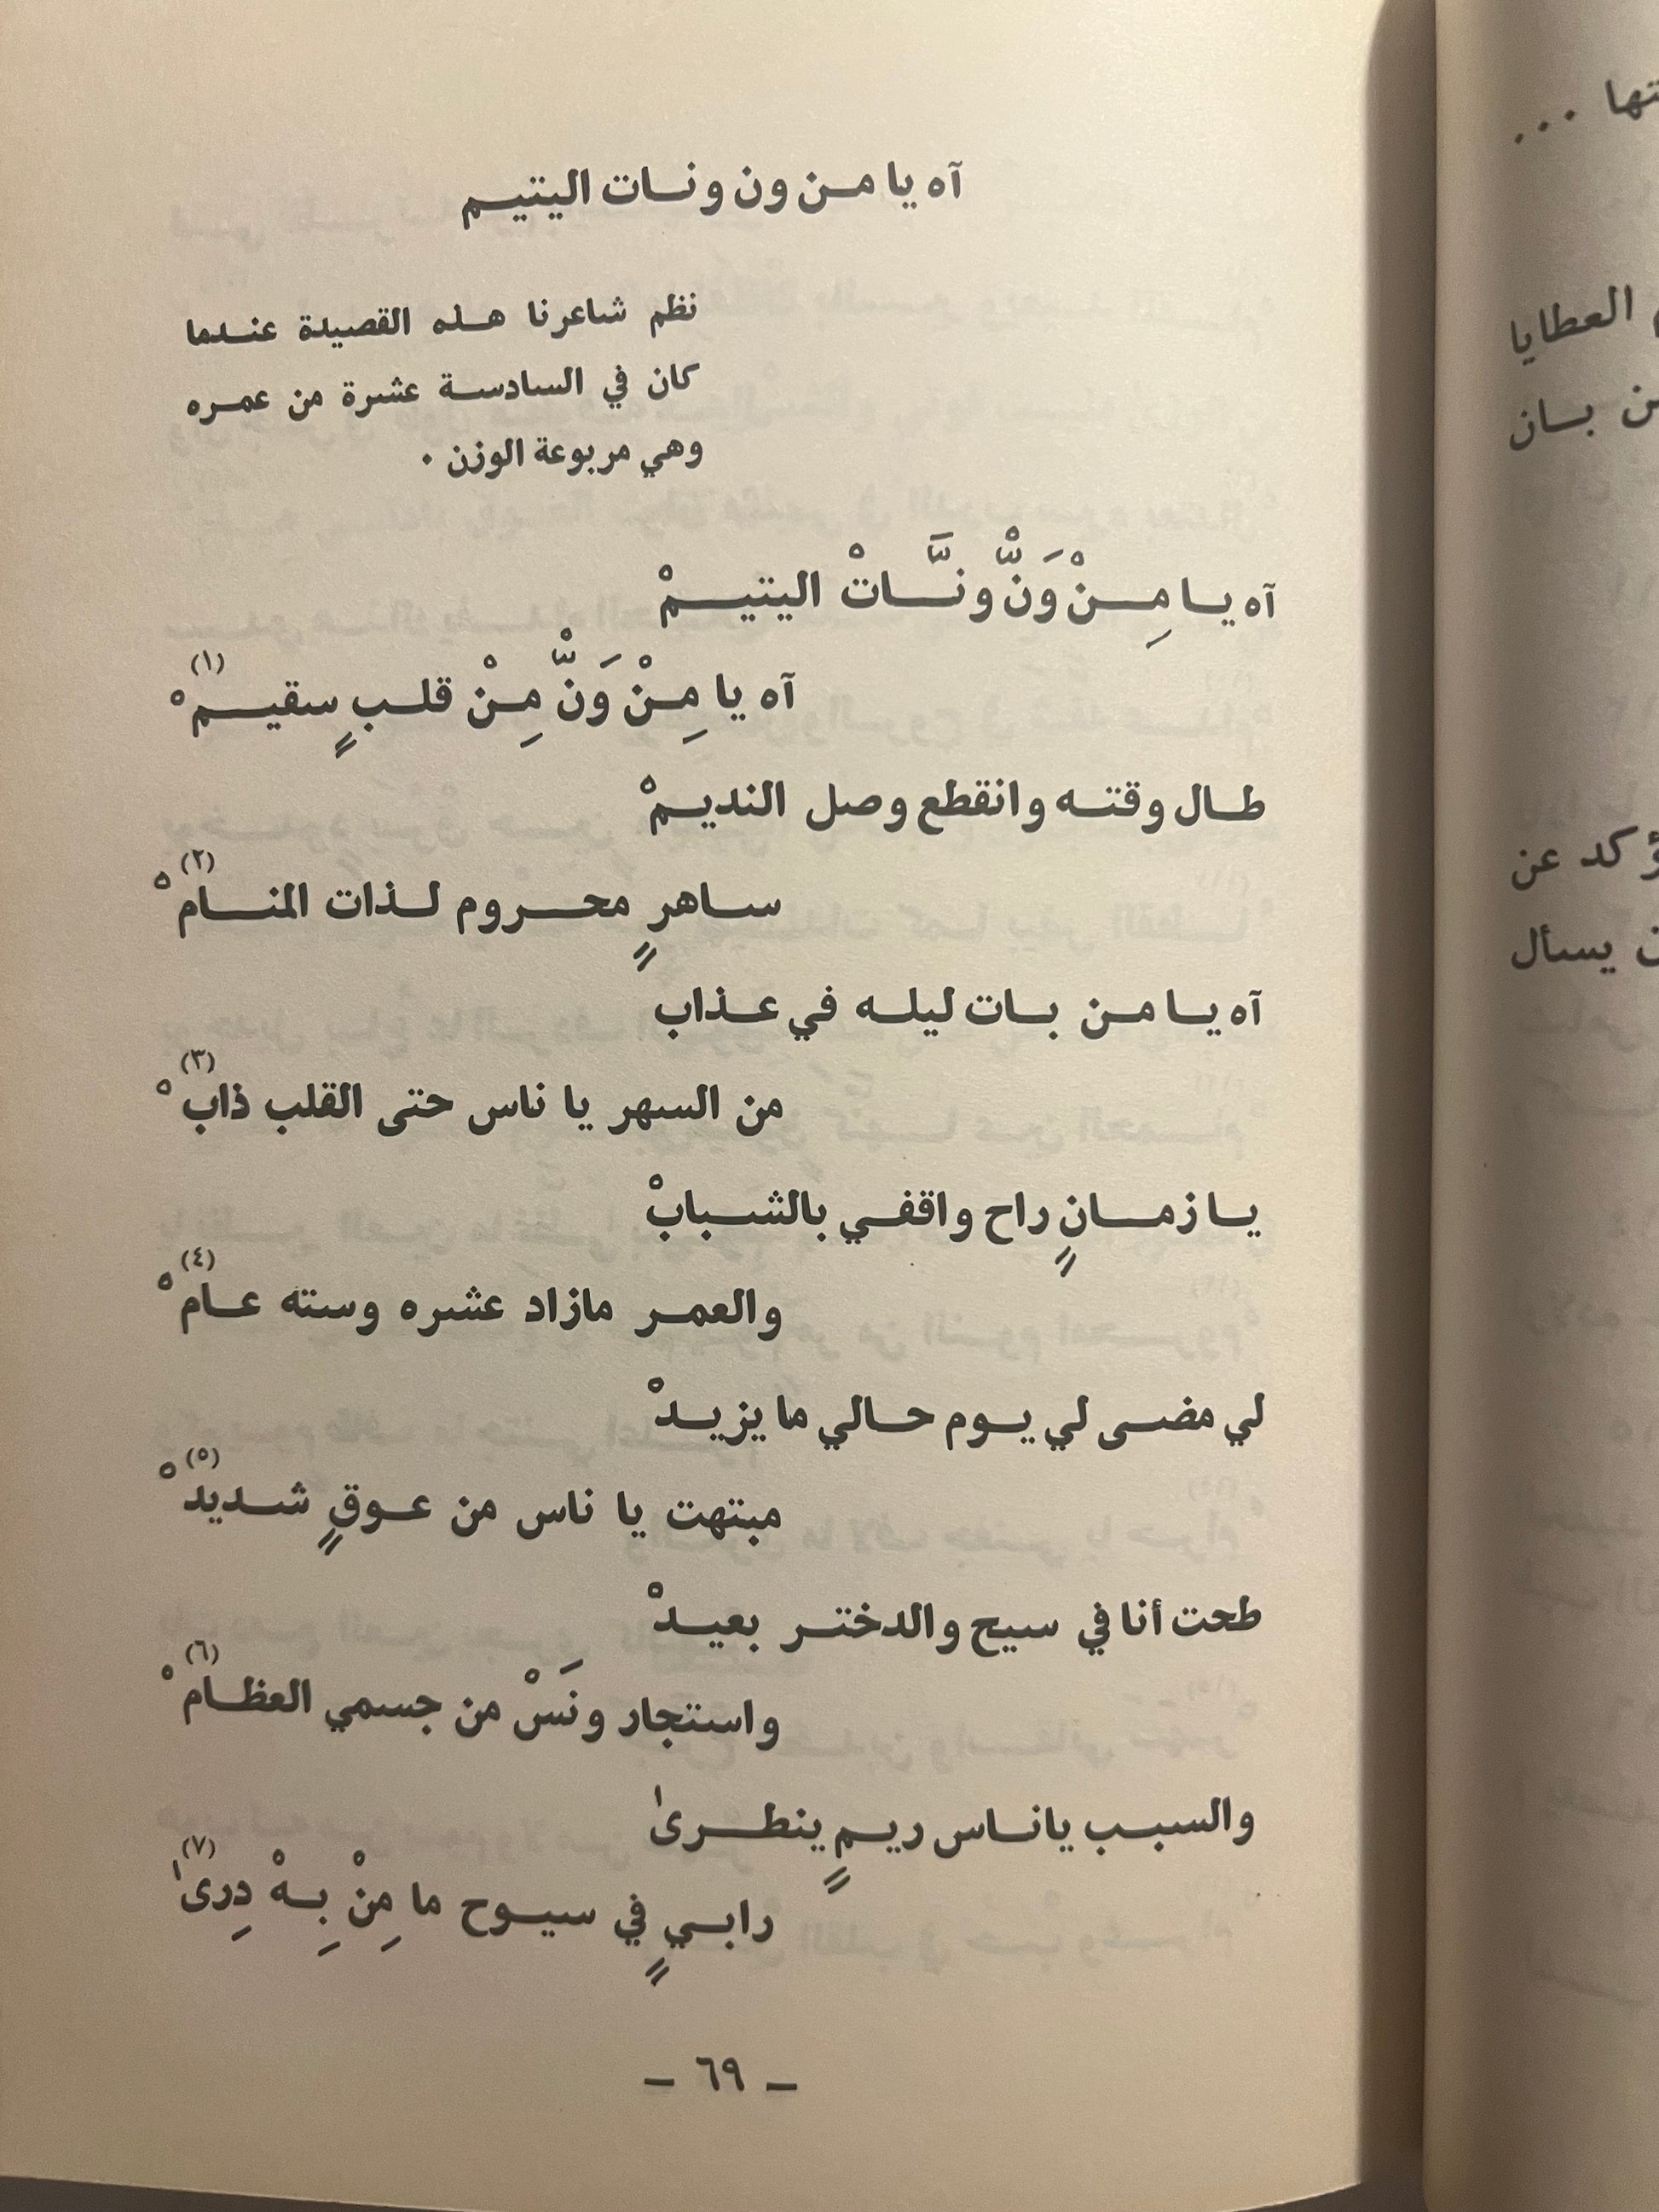 آه يا من ون ونات اليتيم
نظم شاعرنا هذه القصيدة عندما
كان في السادسة عشرة من عمره
وهي مربوعة الوزن .
آه يا مِنْ وَنّْ ونَّاتْ اليتيمْ
آه يا مِنْ وَنّْ مِنْ قلبٍ سقيمْ (١)
طال وقته وانقطع وصل النديمْ
ساهرٍ محروم لذات المنامْ (٢)
آه يا من بات ليله في عذاب
من السهر يا ناس حتى القلب ذابْ (٣)
يا زمانٍ راح واقفي بالشبابْ
والعمر مازاد عشره وسته عامْ (٤)
لي مضى لي يوم حالي ما يزيدْ
مبتهت يا ناس من عوقٍ شديدْ (٥)
طحت أنا في سيح والدختر بعيدْ
واستجار ونَسْ من جسمي العظامْ (٦)
والسبب ياناس ريمٍ ينطرىٰ
رابيٍ في سيوح ما مِنْ بِهْ دِرىٰ (٧)
– ٦٩ –
تها ...
العطايا
ن بان
ؤكد عن
ن يسأل